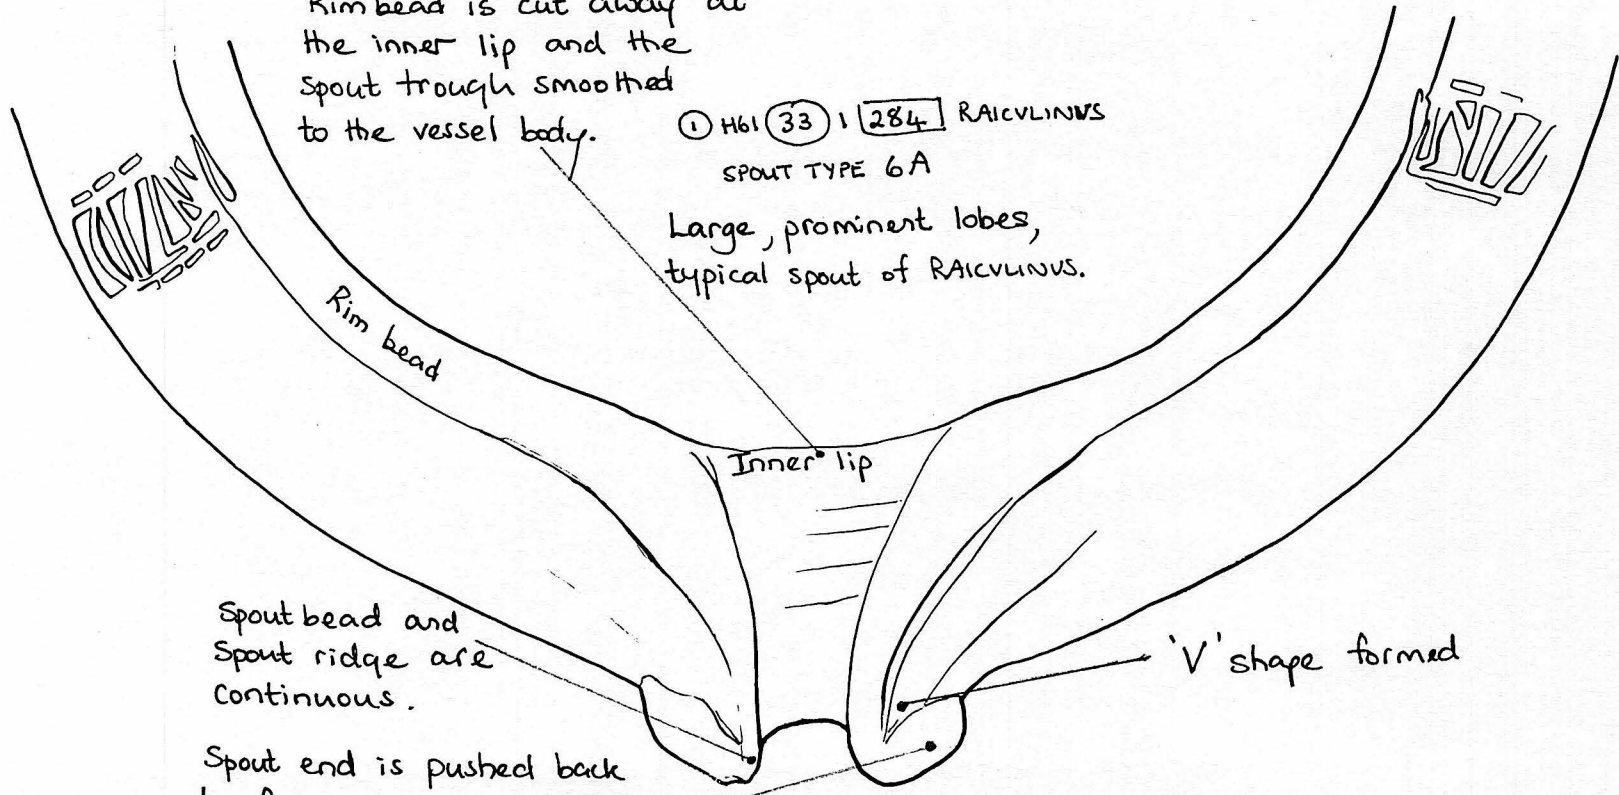 Rim bead is cut away at
the inner lip and the
spout trough smoothed
to the vessel body.
① H61 33 1 284 RAICVLINVS
SPOUT TYPE 6A
Large, prominent lobes,
typical spout of RAICVLINVS.
Rim bead
Inner lip
Spout bead and
Spout ridge are
continuous.
'V' shape formed
Spout end is pushed back